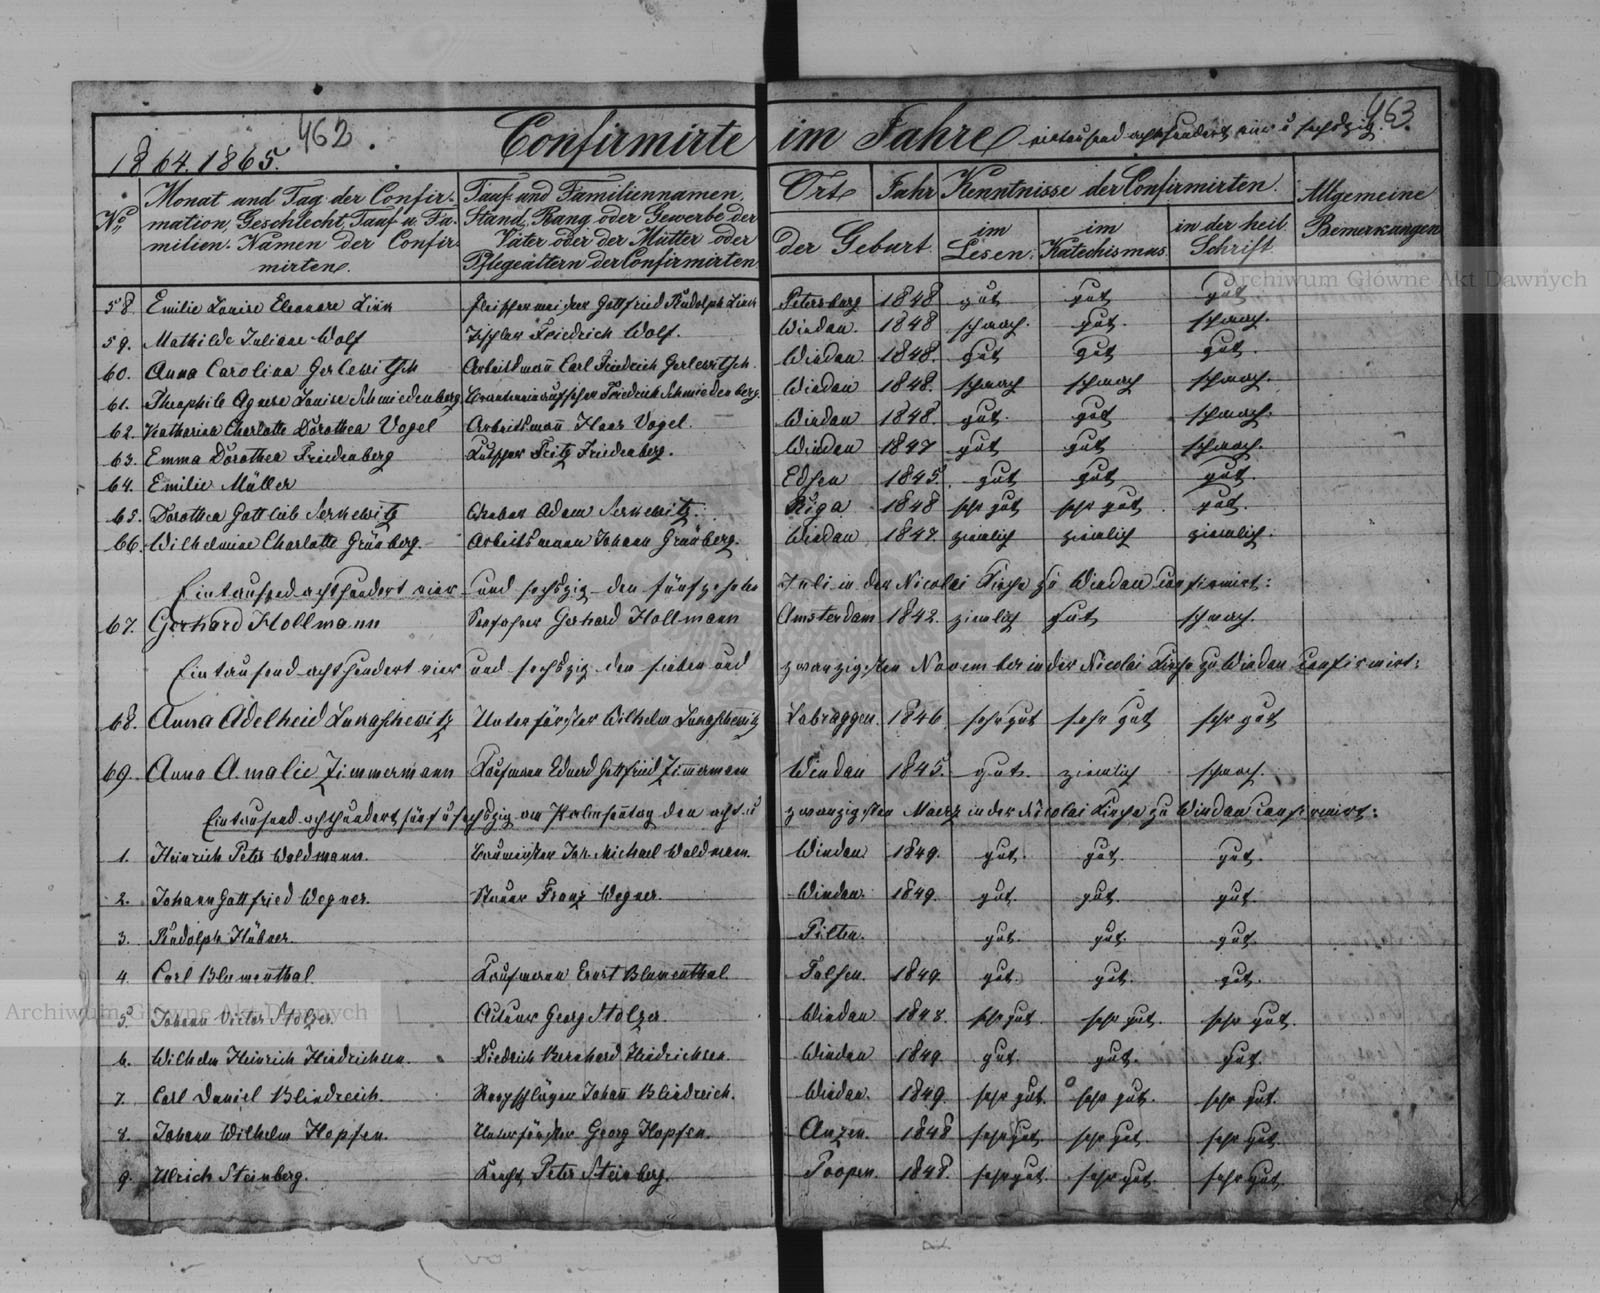 462.
463.
1864. 1865.
Confirmirte im Jahre eintausend achthundert vier u sechszig.
No
Monat und Tag der Confir-
mation, Geschlecht, Tauf- u. Fa-
milien-Namen der Confir-
mirten.
Tauf- und Familiennamen,
Stand, Rang oder Gewerbe der
Väter oder der Mütter oder
Pflegeältern der Confirmirten.
Ort Jahr
der Geburt.
Kenntnisse der Confirmirten.
im
Lesen.
im
Katechismus.
in der heil.
Schrift.
Allgemeine
Bemerkungen
58. Emilie Louise Eleonore Gottfried Rudolph Petersburg 1848 gut gut gut
59. Mathilde Juliane Wolf Tischler Friedrich Wolf. Windau. 1848 schwach. gut. schwach.
60. Anna Carolina Gerlewitsch Arbeitsmann Carl Friedrich Gerlewitsch. Windau 1848. gut gut gut.
61. Theophile Agnese Louise Schmiedenberg Friedrich Schmiedenberg. Windau 1848. schwach schwach schwach.
62. Katharina Charlotte Dorothea Vogel Arbeitsmann Hans Vogel. Windau 1848. gut. gut schwach.
63. Emma Dorothea Friedenberg Fritz Friedenberg. Windau 1847 gut gut schwach.
64. Emilie Müller 1845. gut gut gut.
65. Dorothea Gottlieb Serkewitz Adam Serkewitz. Riga 1848 sehr gut sehr gut gut.
66. Wilhelmine Charlotte Grünberg. Arbeitsmann Johann Grünberg. Windau 1847. ziemlich ziemlich ziemlich.
Eintausend achthundert vier und sechszig den fünfzehnten Juli in der Nicolai Kirche zu Windau confirmirt:
67. Gerhard Hollmann Seefahrer Gerhard Hollmann Amsterdam 1842. ziemlich gut schwach.
Eintausend achthundert vier und sechszig den sieben und zwanzigsten November in der Nicolai Kirche zu Windau confirmirt:
68. Anna Adelheid Unterförster Wilhelm 1846 sehr gut sehr gut sehr gut
69. Anna Amalie Zimmermann Kaufmann Eduard Gottfried Zimmermann Windau 1845. gut. ziemlich schwach.
Eintausend achthundert fünf u sechszig am Palmsontag den acht u zwanzigsten Maerz in der Nicolai Kirche zu Windau confirmirt:
1. Heinrich Peter Waldmann. Baumeister Joh. Michael Waldmann. Windau 1849. gut. gut. gut.
2. Johann Gottfried Wegner. Franz Wegner. Windau. 1849. gut. gut. gut.
3. Rudolph Hübner. Pilten. gut. gut. gut.
4. Carl Blumenthal. Kaufmann Ernst Blumenthal Talsen. 1849. gut. gut. gut.
5. Johann Victor Stolzer. Georg Stolzer. Windau 1848. sehr gut. sehr gut. sehr gut.
6. Wilhelm Heinrich Hindrichsen. Diedrich Bernhard Hindrichsen. Windau 1849. gut. gut. gut.
7. Carl Daniel Blindreich. Reepschläger Johann Blindreich. Windau. 1849. sehr gut. sehr gut. sehr gut.
8. Johann Wilhelm Hopfen. Unterförster Georg Hopfen. Anzen. 1848 sehr gut sehr gut. sehr gut
9. Ulrich Steinberg. Knecht Peter Steinberg. Poopen. 1848. sehr gut. sehr gut. sehr gut
Archiwum Główne Akt Dawnych
Archiwum Główne Akt Dawnych